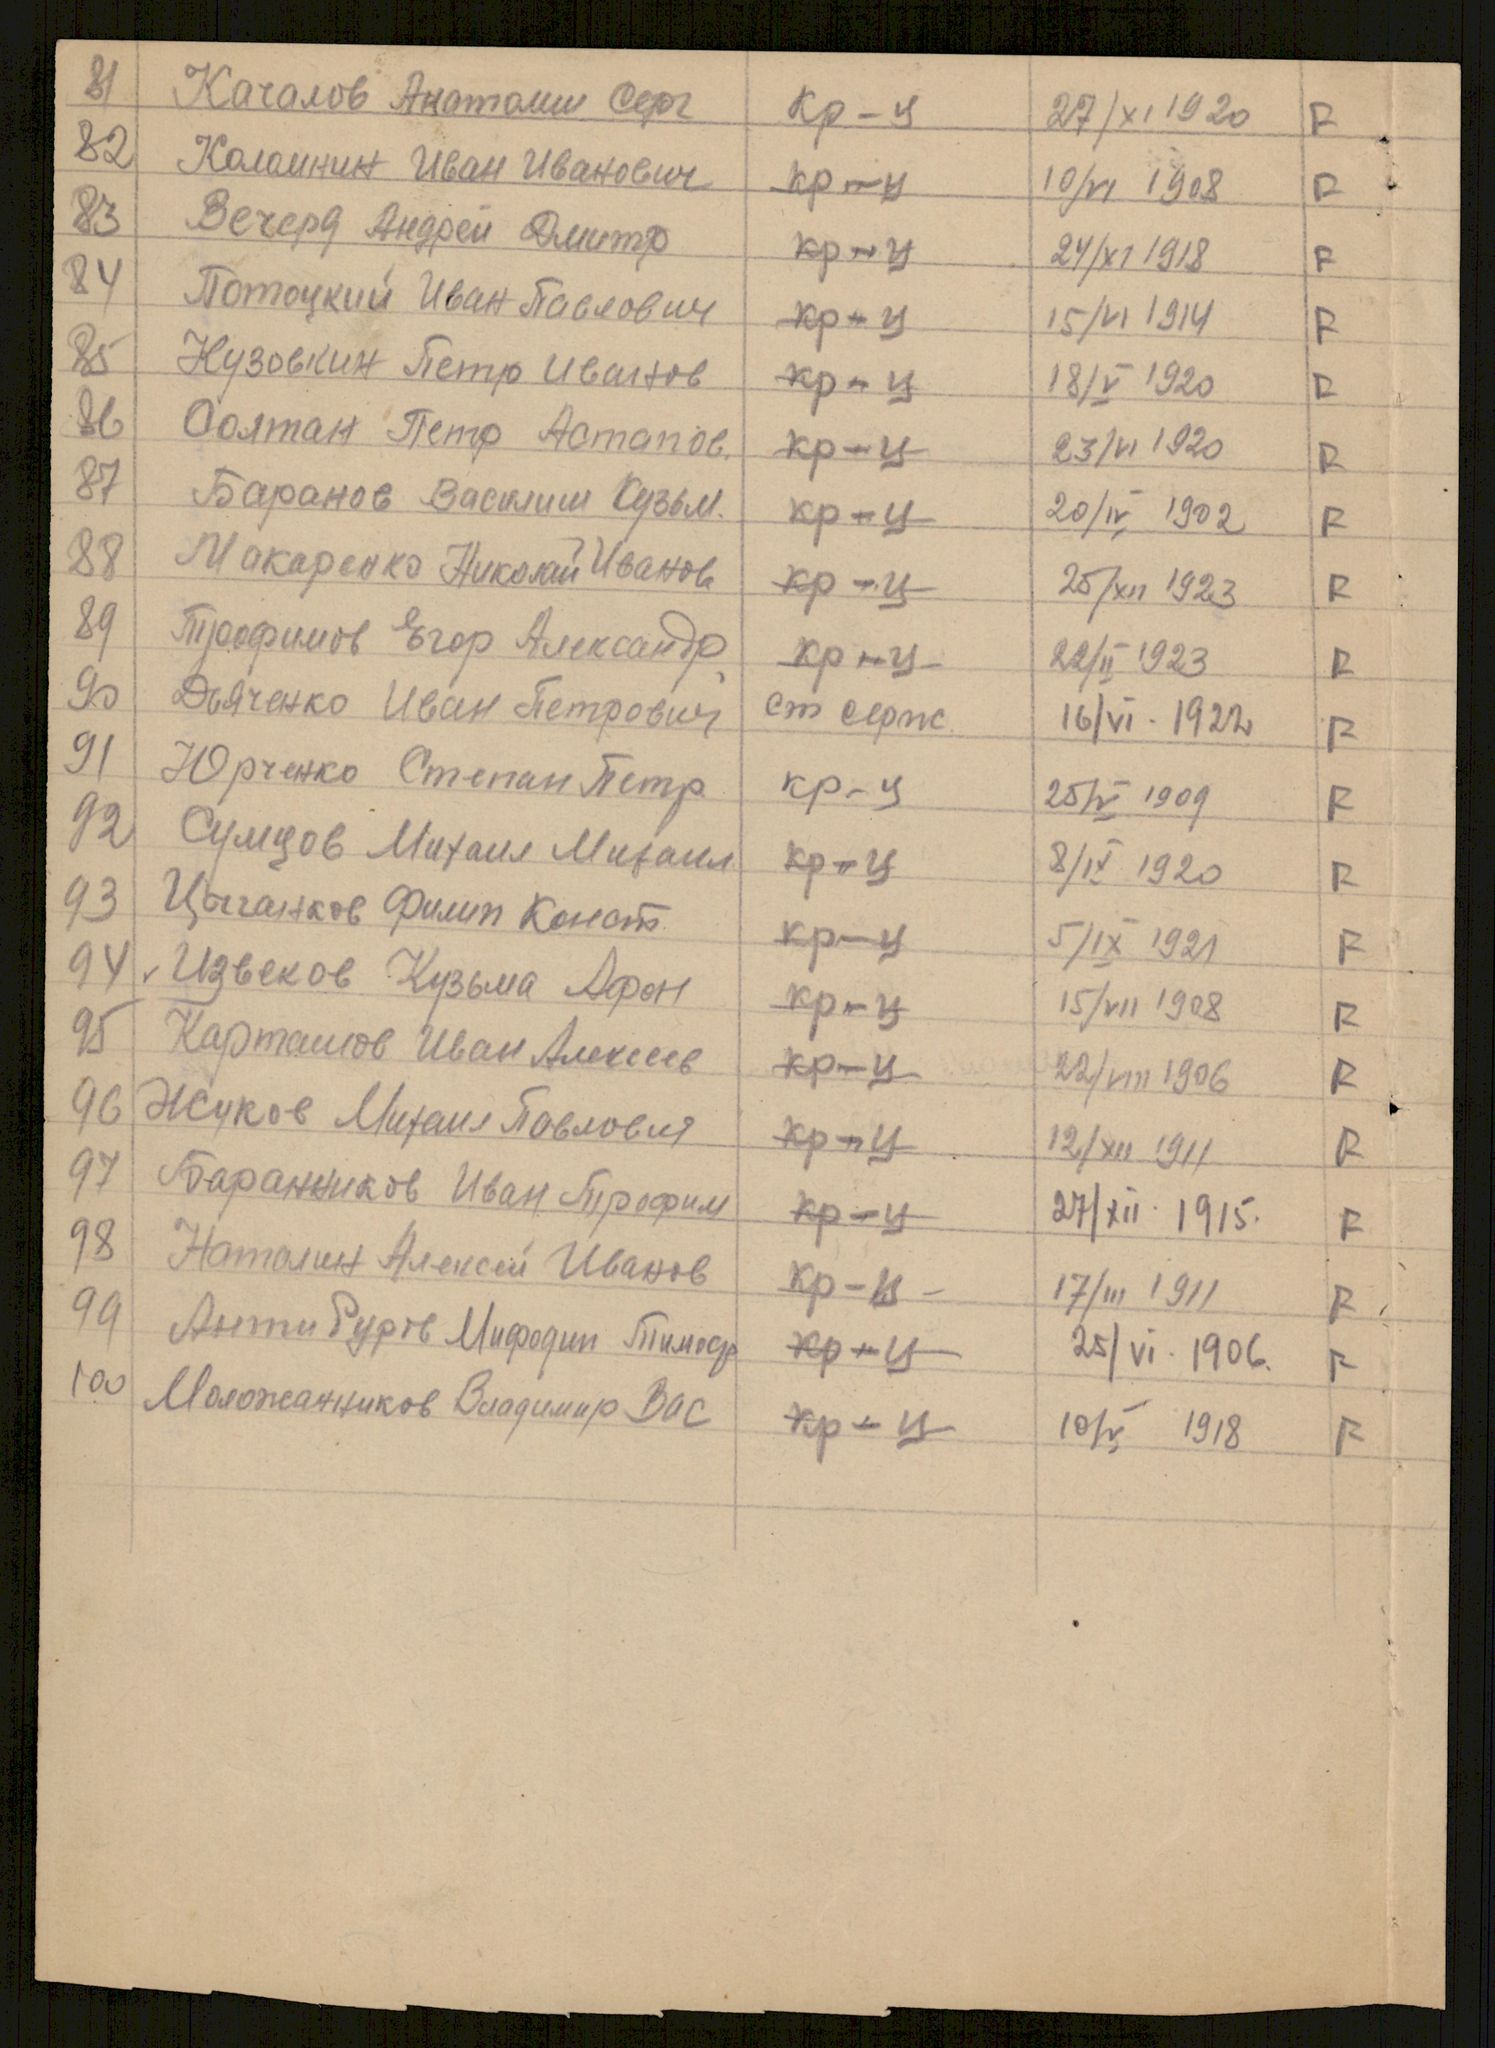 81 Качалов Анатолии Серг кр-ц 27/XI 1920 R
82 Коломнин Иван Иванович кр-ц 10/VI 1908 R
83 Вечеря Андрей Дмитр кр-ц 24/XI 1918 R
84 Потоцкий Иван Павлович кр-ц 15/VI 1914 R
85 Нузовкин Петр Иванов кр-ц 18/V 1920 R
86 Солтан Петр Астапов. кр-ц 23/VI 1920 R
87 Баранов Василии Кузьм. кр-ц 20/IV 1902 R
88 Макаренко Николай Иванов кр-ц 25/XII 1923 R
89 Трофимов Егор Александр кр-ц 22/II 1923 R
90 Дьяченко Иван Петрович ст серж. 16/VI. 1922 R
91 Юрченко Степан Петр кр-ц 1909 R
92 Сумцов Михаил Михаил кр-ц 8/IX 1920 R
93 Цыганков Филип Конст. кр-ц 5/IX 1921 R
94 Извеков Кузьма Афон кр-ц 15/VII 1908 R
95 Карташов Иван Алексеев кр-ц 22/VIII 1906 R
96 Жуков Михаил Павлович кр-ц 12/XII 1911 R
97 Баранников Иван Трофим кр-ц 27/XII. 1915. R
98 Наталин Алексей Иванов кр-ц 17/III 1911 R
99 Мифодии Тимоф кр-ц 25/VI. 1906. R
100 Моложанников Владимир Вас кр-ц 10/V 1918 R